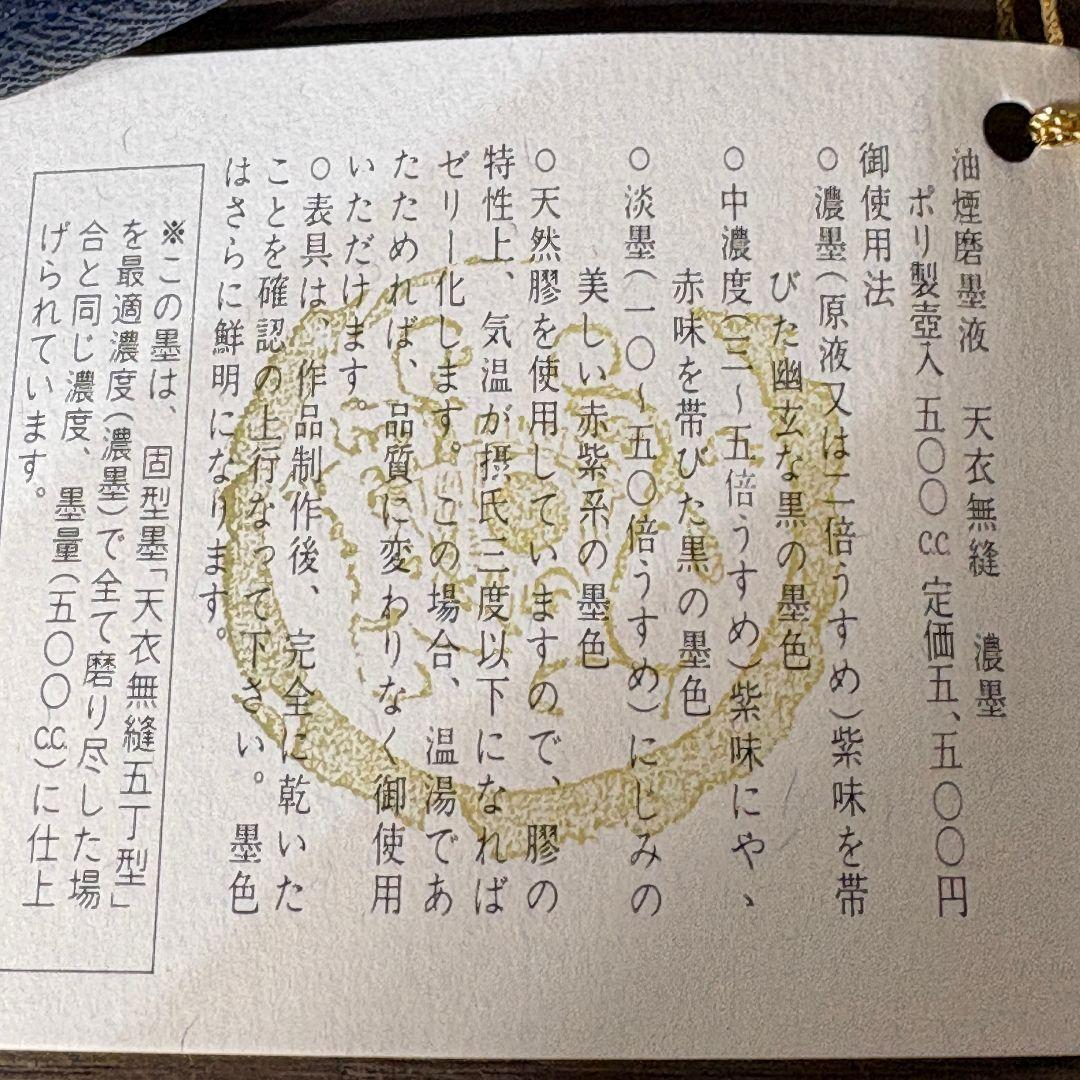 油煙磨墨液　天衣無縫　濃墨
ポリ製壺入　五〇〇cc　定価五、五〇〇円
御使用法
○濃墨（原液又は二倍うすめ）紫味を帯
びた幽玄な黒の墨色
○中濃度（三～五倍うすめ）紫味にや、
赤味を帯びた黒の墨色
○淡墨（一〇～五〇倍うすめ）にじみの
美しい赤紫系の墨色
○天然膠を使用していますので、膠の
特性上、気温が摂氏三度以下になれば
ゼリー化します。この場合、温湯であ
たためれば、品質に変わりなく御使用
いただけます。
○表具は、作品制作後、完全に乾いた
ことを確認の上行なって下さい。墨色
はさらに鮮明になります。
※この墨は、固型墨「天衣無縫五丁型」
を最適濃度（濃墨）で全て磨り尽した場
合と同じ濃度、墨量（五〇〇cc）に仕上
げられています。